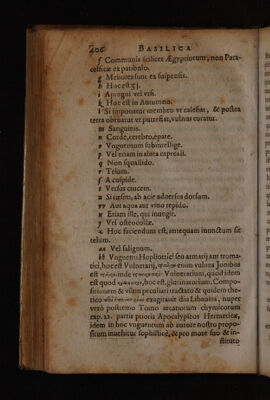 406 BASILICA
f Communis scilicet Ægyptiorum, non Para-
celsicæ ex patibulo.
g Meliores sunt ex suspensis.
h Hoc est ʒj.
i Aprugni vel ursi.
k Hoc est in Autumno.
l Si imponatur membro ut calefiat, & postea
terra obruatur ut putrescat, vulnus curatur.
m Sanguinis.
n Corde, cerebro, epate.
o Unguentum subintellige.
p Vel etiam in aluta capreali.
q Non squallido.
r Telum.
s A cuspide.
t Versus crucem.
u Si cæsim, ab acie adversus dorsum.
yy Aut aqua aut vino tepido.
x Etiam ille, qui inungit.
y Vel osteocollæ.
z Hoc faciendum est, antequam inunctum sit
telum.
aa Vel salignum.
bb Unguenti Hopliatrici seu armarij aut troma-
tici, hoc est Vulnerarij, enim vulnus Ionibus
est inde Vulnerarium, quod idem
est quod hoc est, glutinatorium. Compo-
sitionem & usum peculiari tractatu & quidem the-
tico exagitavit dn. Libavius, nuper
verò postremo Tomo arcanorum chymicorum
cap. 22. partis prioris Apocalypseos Hermeticæ,
idem in hoc unguentum ab autore nostro propo-
situm invehitur sophisticè, & pro more suo & in-
stituto